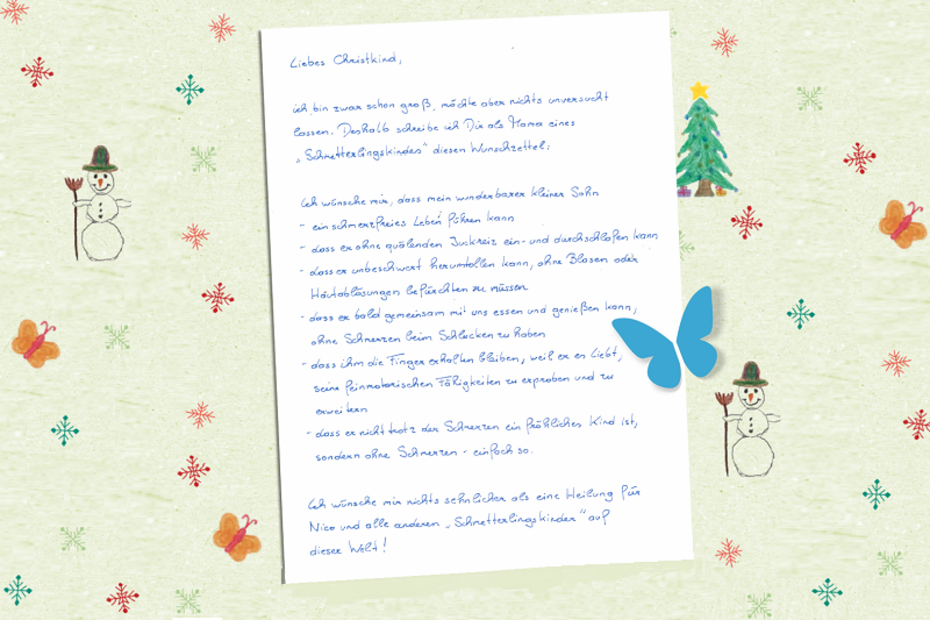 Liebes Christkind,
ich bin zwar schon groß, möchte aber nichts unversucht
lassen. Deshalb schreibe ich Dir als Mama eines
„Schmetterlingskindes" diesen Wunschzettel:
Ich wünsche mir, dass mein wunderbarer kleiner Sohn
- ein schmerzfreies Leben führen kann
- dass er ohne quälenden Juckreiz ein- und durchschlafen kann
- dass er unbeschwert herumtollen kann, ohne Blasen oder
Hautablösungen befürchten zu müssen
- dass er bald gemeinsam mit uns essen und genießen kann,
ohne Schmerzen beim Schlucken zu haben
- dass ihm die Finger erhalten bleiben, weil er es liebt,
seine feinmotorischen Fähigkeiten zu erproben und zu
erweitern
- dass er nicht trotz der Schmerzen ein fröhliches Kind ist,
sondern ohne Schmerzen - einfach so.
Ich wünsche mir nichts sehnlicher als eine Heilung für
Nico und alle anderen „Schmetterlingskinder" auf
dieser Welt!